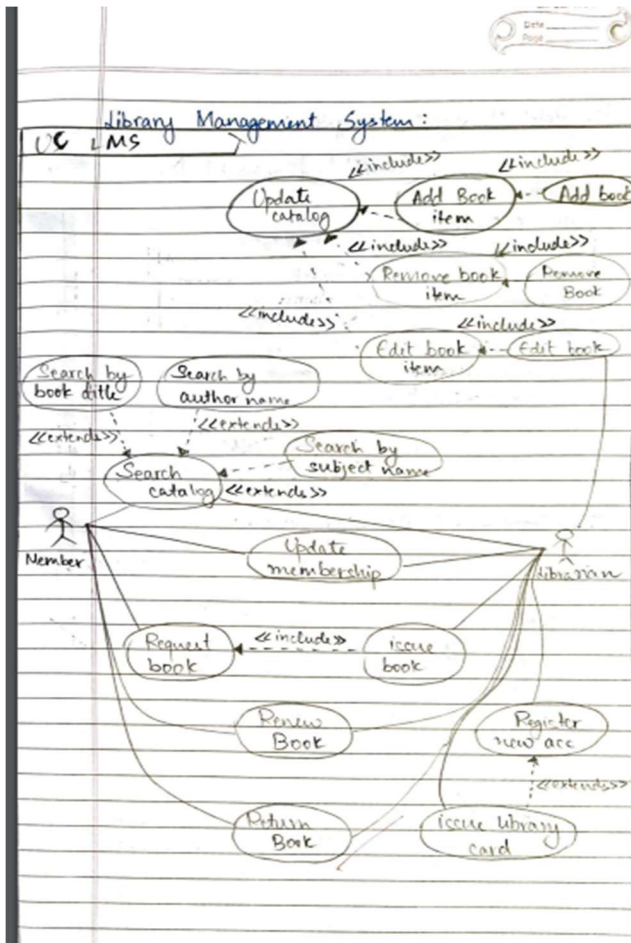 Date
Page
Library Management System:
UC LMS
<<include>>
<<include>>
Update
catalog
Add Book
item
Add book
<<include>>
<<include>>
Remove book
item
Remove
Book
<<include>>
<<include>>
Edit book
item
Edit book
Search by
book title
Search by
author name
<<extends>>
<<extends>>
Search by
subject name
Search
catalog
<<extends>>
Member
Update
membership
Librarian
Request
book
<<include>>
issue
book
Renew
Book
Register
new acc
<<extends>>
Return
Book
issue library
card